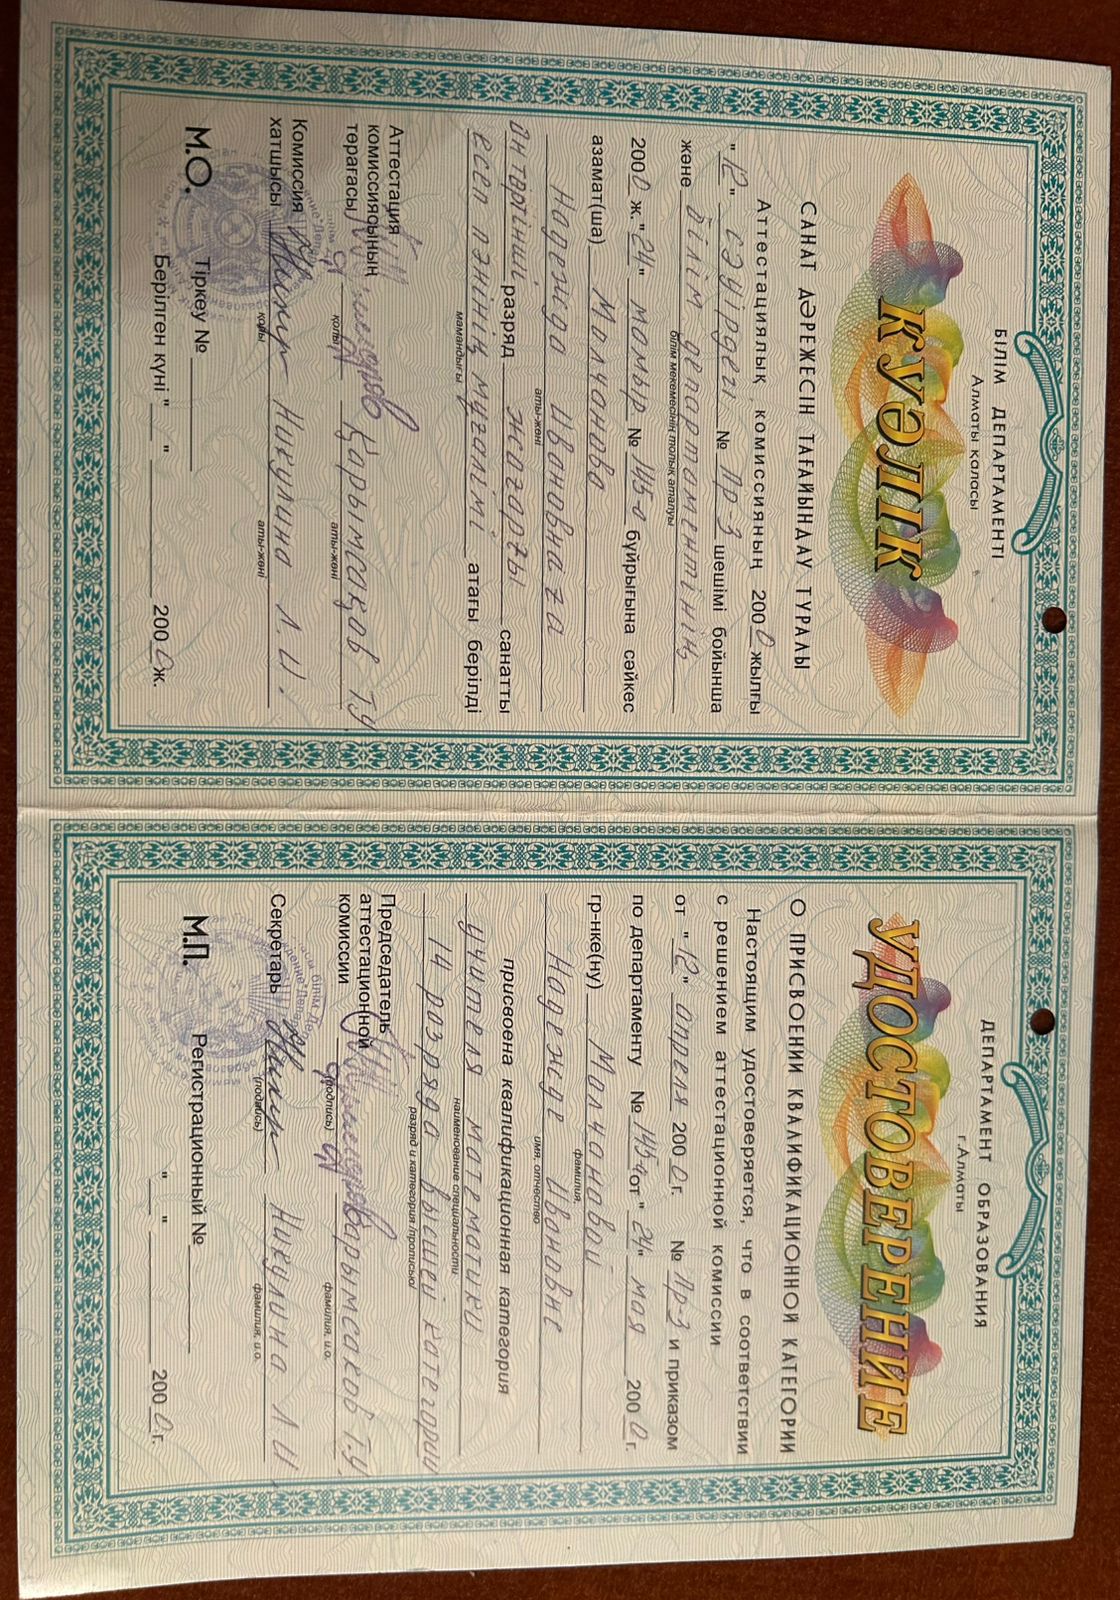 БІЛІМ ДЕПАРТАМЕНТІ
Алматы қаласы
КУӘЛІК
САНАТ ДӘРЕЖЕСІН ТАҒАЙЫНДАУ ТУРАЛЫ
Аттестациялық комиссияның 2000 жылғы
"12" сәуірдегі № Пр-3 шешімі бойынша
және білім департаментінің
білім мекемесінің толық аталуы
2000 ж. "24" мамыр № 145а бұйрығына сәйкес
азамат(ша) Молчанова
Надежда Ивановнаға
аты-жөні
он төртінші разряд жоғарғы санатты
есеп пәнінің мұғалімі атағы берілді
мамандығы
Аттестация
комиссиясының
төрағасы Қарымсақов Т.У.
қолы аты-жөні
Комиссия
хатшысы Никулина Л.И.
қолы аты-жөні
М.О. Тіркеу №
Берілген күні " " 2000ж.
ДЕПАРТАМЕНТ ОБРАЗОВАНИЯ
г.Алматы
УДОСТОВЕРЕНИЕ
О ПРИСВОЕНИИ КВАЛИФИКАЦИОННОЙ КАТЕГОРИИ
Настоящим удостоверяется, что в соответствии
с решением аттестационной комиссии
от "12" апреля 2000г. № Пр-3 и приказом
по департаменту № 145а от "24" мая 2000г.
гр-нке(ну) Молчановой
фамилия,
Надежде Ивановне
имя, отчество
присвоена квалификационная категория
учителя математики
наименование специальности
14 разряда высшей категории
разряд и категория /прописью/
Председатель
аттестационной
комиссии Карымсаков Т.У.
(подпись) фамилия, и.о.
Секретарь Никулина Л.И.
(подпись) фамилия, и.о.
М.П. Регистрационный №
" " 2000г.